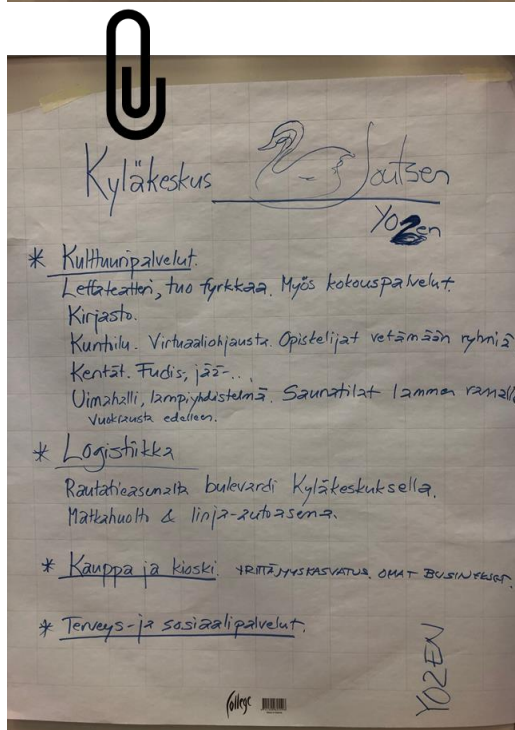 Kyläkeskus Joutsen
YO2en
* Kulttuuripalvelut.
Leffateatteri, tuo fyrkkaa. Myös kokouspalvelut.
Kirjasto.
Kuntoilu. Virtuaaliohjausta. Opiskelijat vetämään ryhmiä
Kentät. Fudis, jää-...
Uimahalli, lampiyhdistelmä. Saunatilat lammen rannalla
Vuokrausta edelleen.
* Logistiikka
Rautatieasemalta bulevardi Kyläkeskuksella.
Matkahuolto & linja-autoasema.
* Kauppa ja kioski. YRITTÄJYYSKASVATUS. OMAT BUSINEKSET.
* Terveys- ja sosiaalipalvelut.
YO2EN
College